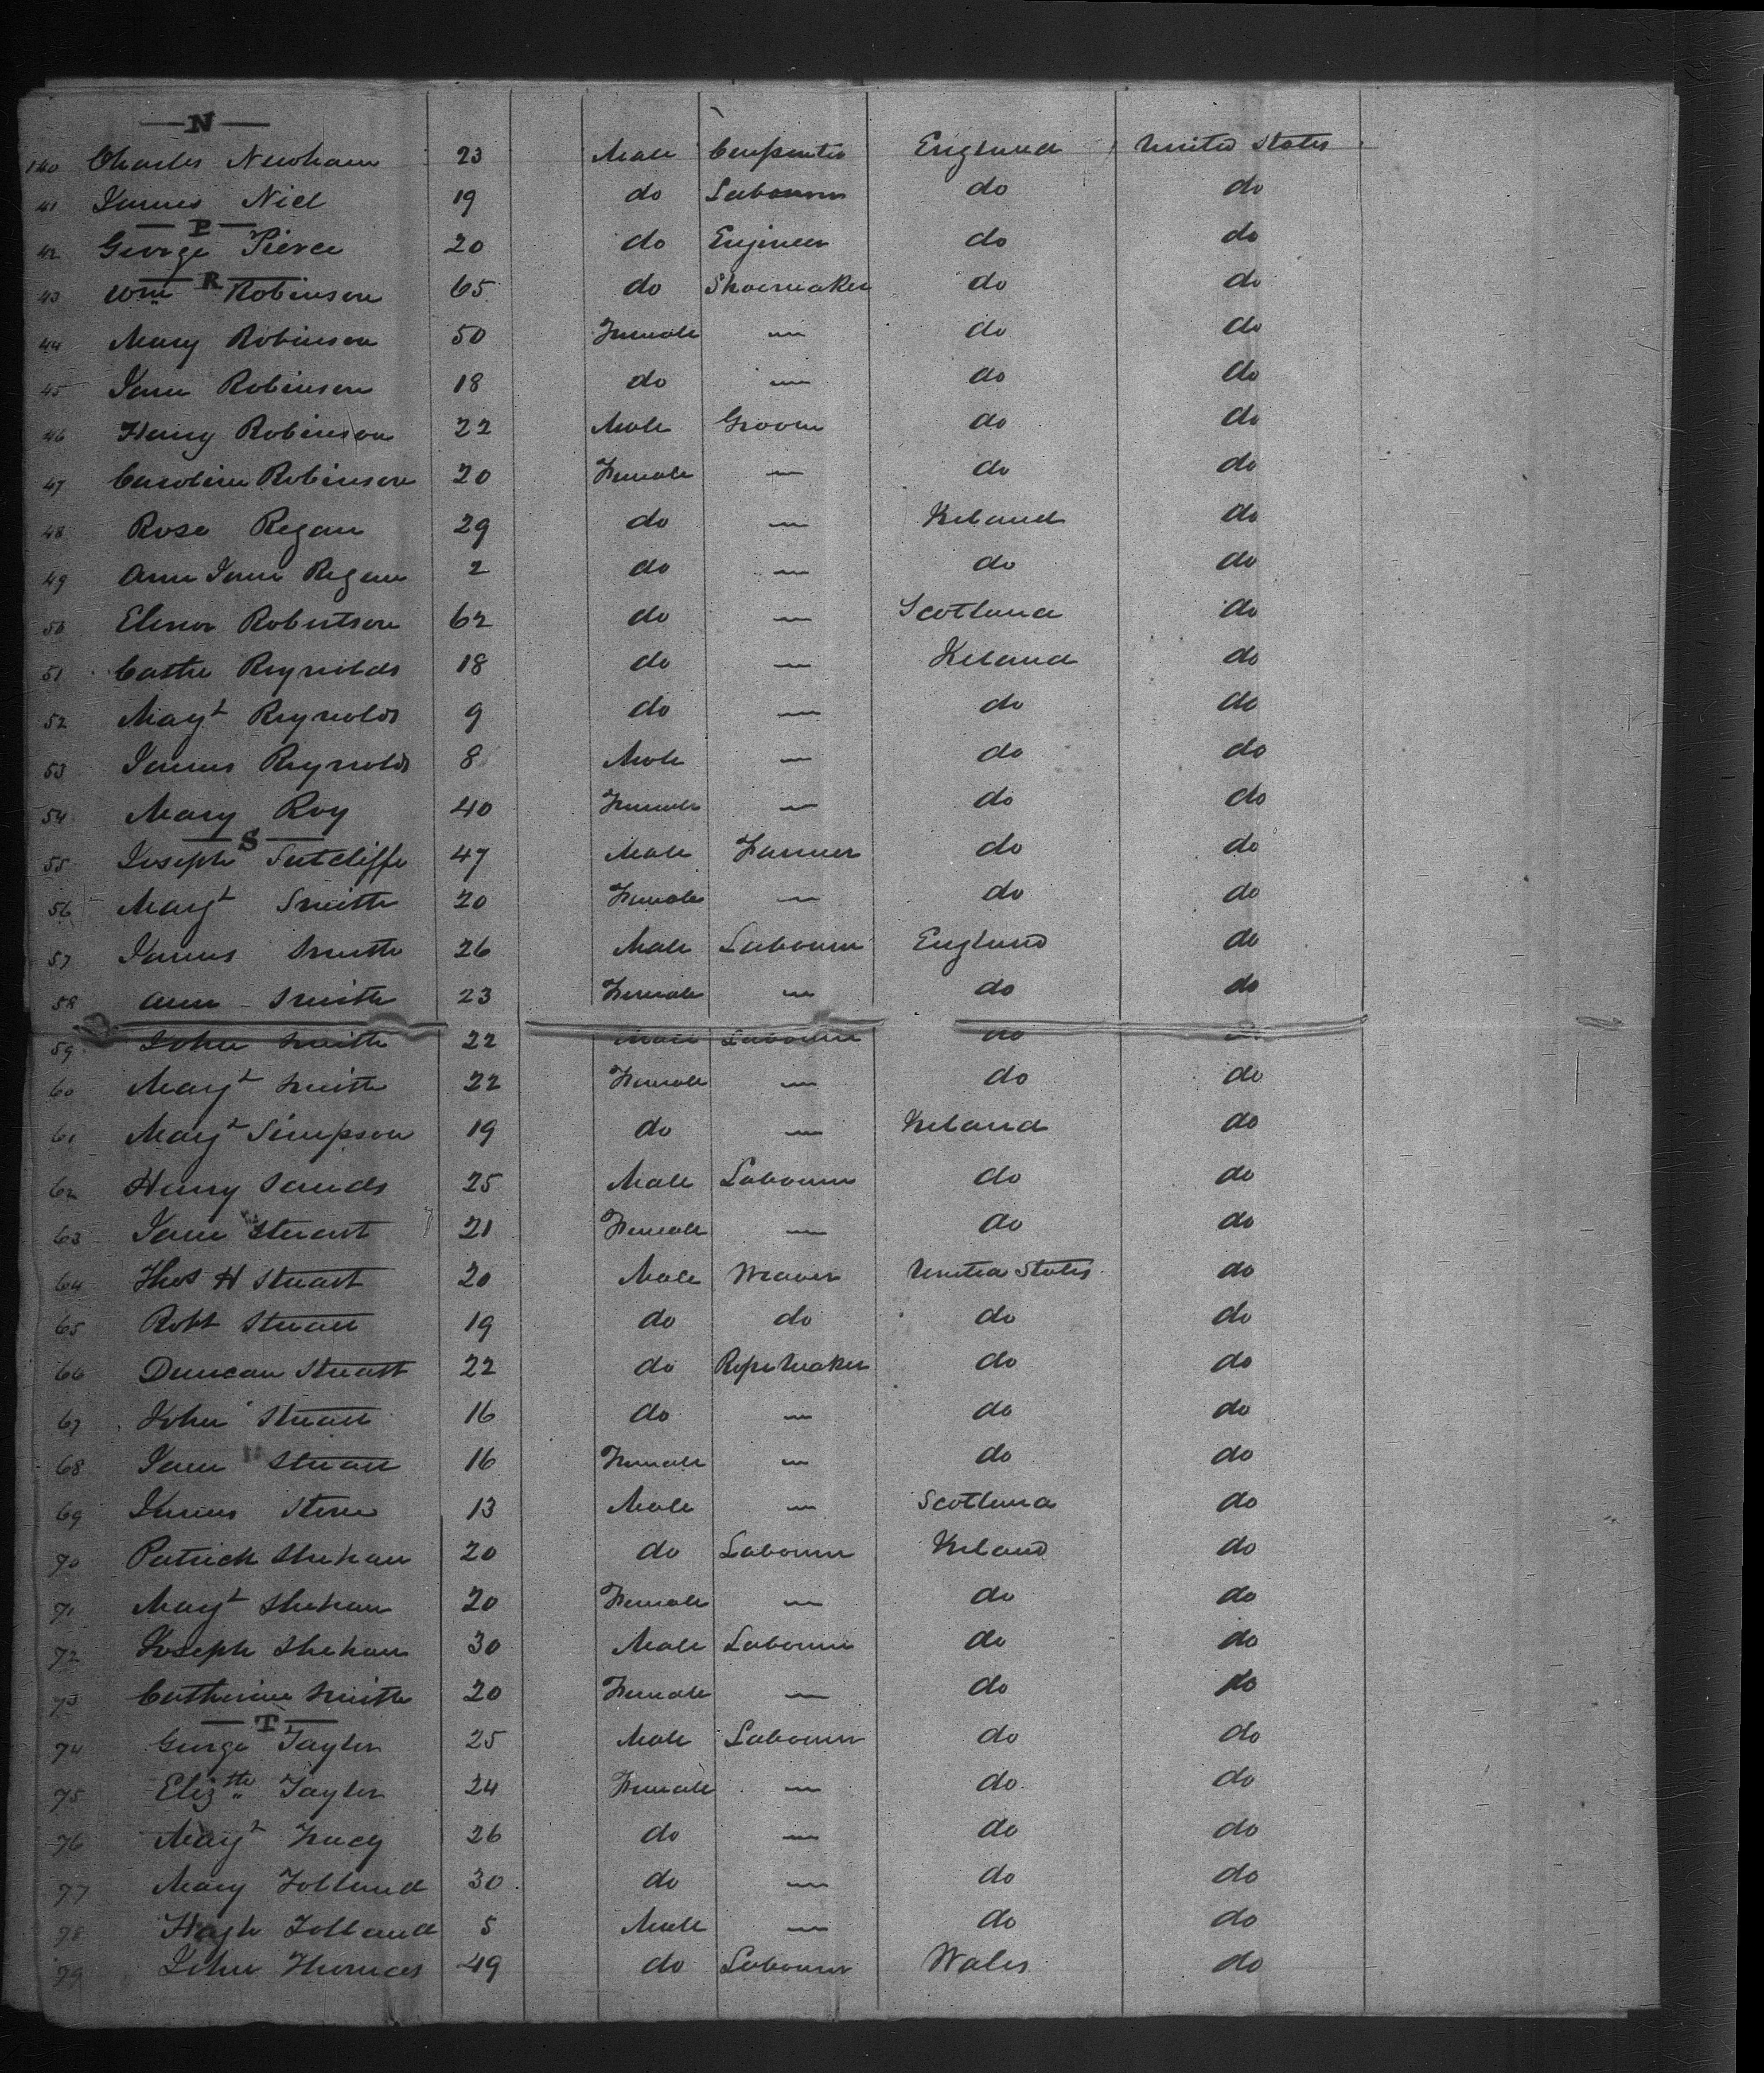 — N —
140 Charles Newham 23 Male Carpenter England United States
41 James Niel 19 do Labourer do do
— P —
42 George Pierce 20 do Engineer do do
— R —
43 Wm Robinson 65 do Shoemaker do do
44 Mary Robinson 50 Female — do do
45 Jane Robinson 18 do — do do
46 Henry Robinson 22 Male Groom do do
47 Caroline Robinson 20 Female — do do
48 Rose Regan 29 do — Ireland do
49 Ann Jane Regan 2 do — do do
50 Elenor Robertson 62 do — Scotland do
51 Cathe Reynolds 18 do — Ireland do
52 Magt Reynolds 9 do — do do
53 James Reynolds 8 Male — do do
54 Mary Roy 40 Female — do do
— S —
55 Joseph Sutcliffe 47 Male Farmer do do
56 Margt Smith 20 Female — do do
57 James Smith 26 Male Labourer England do
58 Ann Smith 23 Female — do do
59 John Smith 22 Male Labourer do do
60 Margt Smith 22 Female — do do
61 Margt Simpson 19 do — Ireland do
62 Henry Sands 25 Male Labourer do do
63 Jane Stuart 21 Female — do do
64 Thos H Stuart 20 Male Weaver United States do
65 Robt Stuart 19 do do do do
66 Duncan Stuart 22 do Ropemaker do do
67 John Stuart 16 do — do do
68 Jane Stuart 16 Female — do do
69 James Stone 13 Male — Scotland do
70 Patrick Shehan 20 do Labourer Ireland do
71 Margt Shehan 20 Female — do do
72 Joseph Shehan 30 Male Labourer do do
73 Catherine Smith 20 Female — do do
— T —
74 George Taylor 25 Male Labourer do do
75 Elizth Taylor 24 Female — do do
76 Margt Tracy 26 do — do do
77 Mary Tolland 30 do — do do
78 Hugh Tolland 5 Male — do do
79 John Thomas 49 do Labourer Wales do